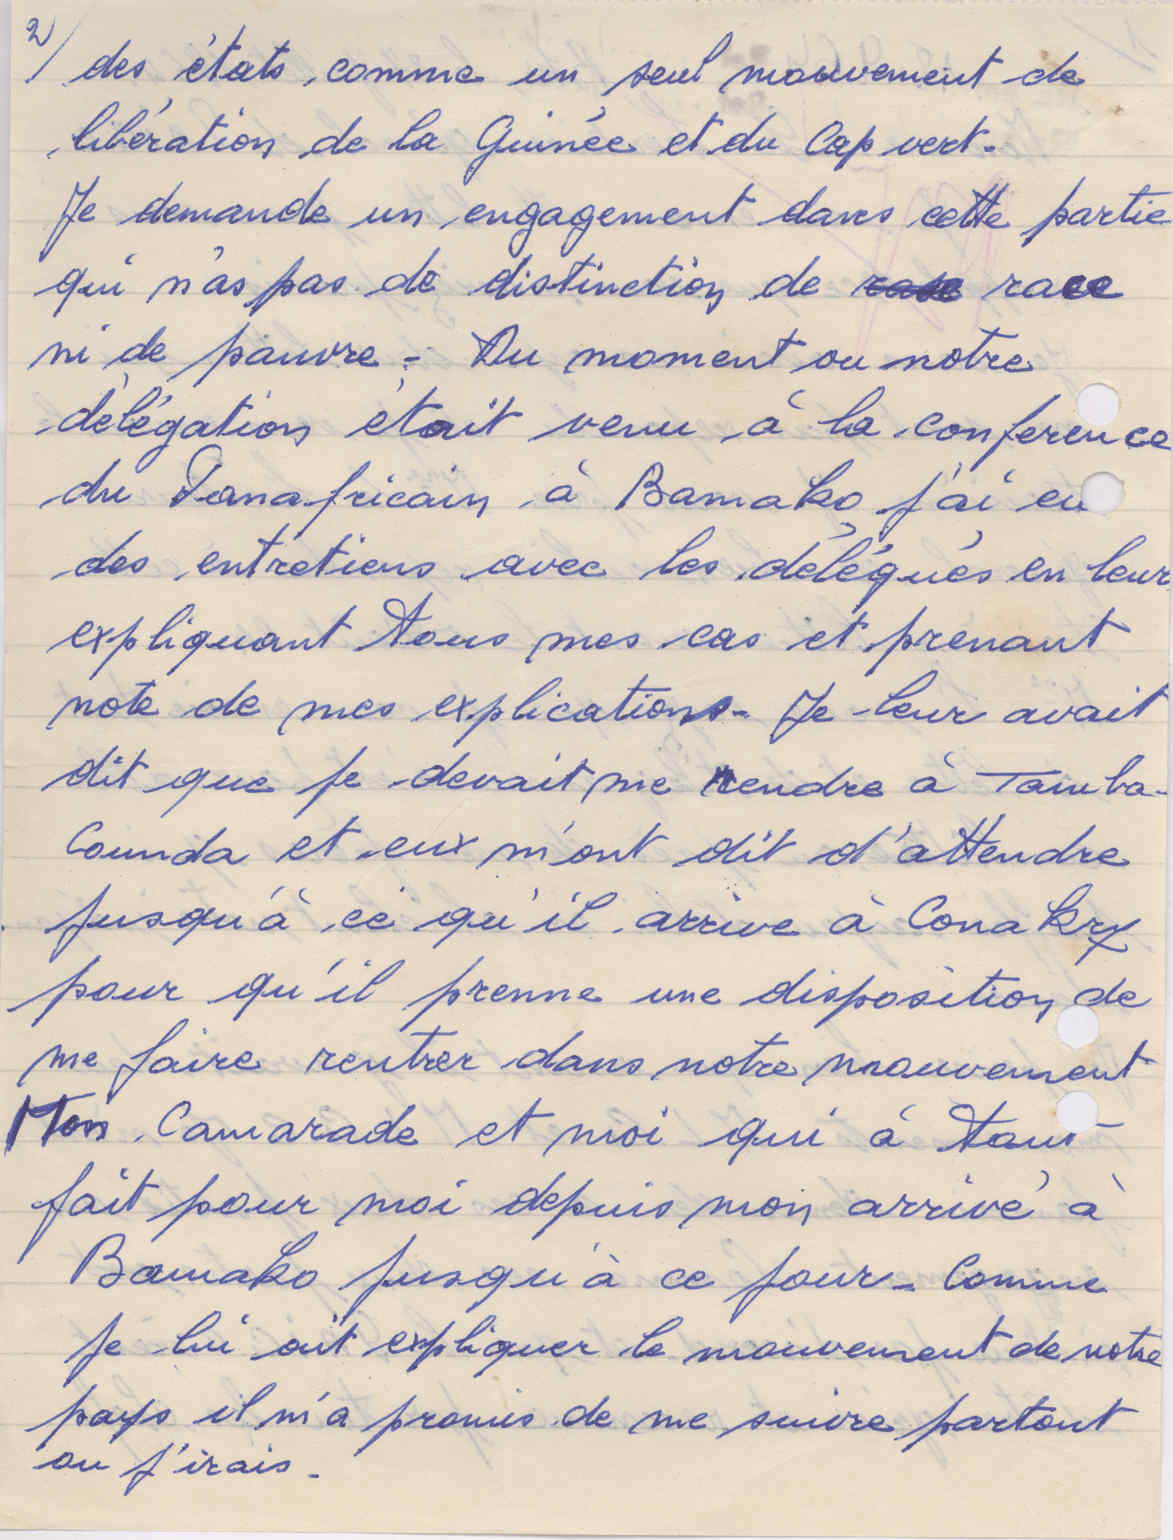 2/
des états comme un seul mouvement de
libération de la Guinée et du Cap vert.
Je demande un engagement dans cette partie
qui n'as pas de distinction de race race
ni de pauvre - Du moment ou notre
délégation était venu à la conference
du Panafricain à Bamako j'ai eu
des entretiens avec les délégués en leur
expliquant tous mes cas et prenant
note de mes explications. Je leur avait
dit que je devait me rendre à Tamba-
Counda et eux m'ont dit d'attendre
jusqu'à ce qu'il arrive à Conakry
pour qu'il prenne une disposition de
me faire rentrer dans notre mouvement
Mon Camarade et moi qui à tout
fait pour moi depuis mon arrivé à
Bamako jusqu'à ce jour. Comme
je lui ait expliquer le mouvement de notre
pays il m'a promis de me suivre partout
ou j'irais.